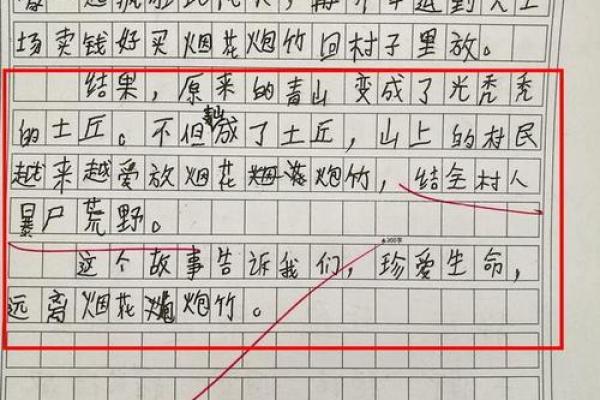 场卖钱好买烟花炮竹回村子里放。
结果，原来的青山变成了光秃秃
的土丘。不但青山成了土丘，山上的村民
越来越爱放烟花炮竹，结全村人
暴尸荒野。
▲300字
这个故事告诉我们，珍爱生命，
远离烟花炮竹。